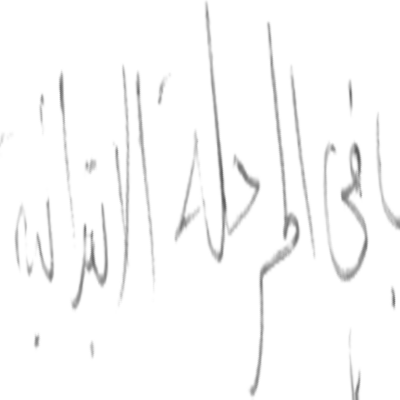 فى المرحلة الابتدائية